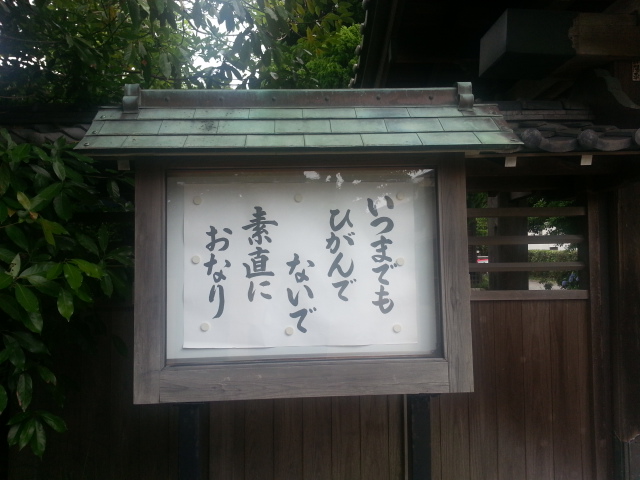 いつまでも
ひがんで
ないで
素直に
おなり